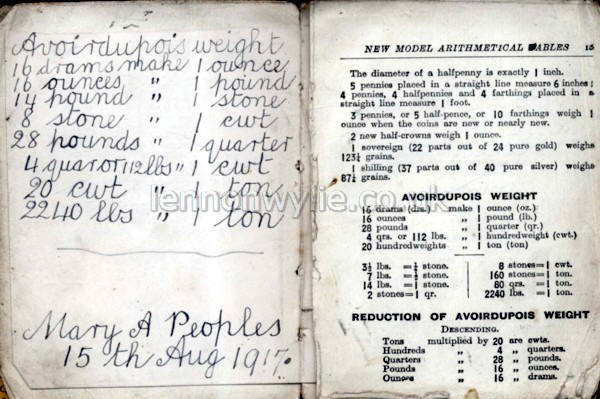 Avoirdupois weight
16 drams make 1 ounce
16 ounces " 1 pound
14 pound " 1 stone
8 stone " 1 cwt
28 pounds " 1 quarter
4 quar or 112 lbs " 1 cwt
20 cwt " 1 ton
2240 lbs " 1 ton
Mary A Peoples
15 th Aug 1917.
lennonwylie.co.uk
NEW MODEL ARITHMETICAL TABLES 15
The diameter of a halfpenny is exactly 1 inch.
5 pennies placed in a straight line measure 6 inches;
4 pennies, 4 halfpennies and 4 farthings placed in a
straight line measure 1 foot.
3 pennies, or 5 half-pence, or 10 farthings weigh 1
ounce when the coins are new or nearly new.
2 new half-crowns weigh 1 ounce.
1 sovereign (22 parts out of 24 pure gold) weighs
123¼ grains.
1 shilling (37 parts out of 40 pure silver) weighs
87¼ grains.
AVOIRDUPOIS WEIGHT
16 drams (drs.) make 1 ounce (oz.)
16 ounces " 1 pound (lb.)
28 pounds " 1 quarter (qr.)
4 qrs. or 112 lbs. " 1 hundredweight (cwt.)
20 hundredweights " 1 ton (ton)
3½ lbs. = ¼ stone. 8 stones = 1 cwt.
7 lbs. = ½ stone. 160 stones = 1 ton.
14 lbs. = 1 stone. 80 qrs. = 1 ton.
2 stones = 1 qr. 2240 lbs. = 1 ton.
REDUCTION OF AVOIRDUPOIS WEIGHT
DESCENDING.
Tons multiplied by 20 are cwts.
Hundreds " 4 " quarters.
Quarters " 28 " pounds.
Pounds " 16 " ounces.
Ounces " 16 " drams.